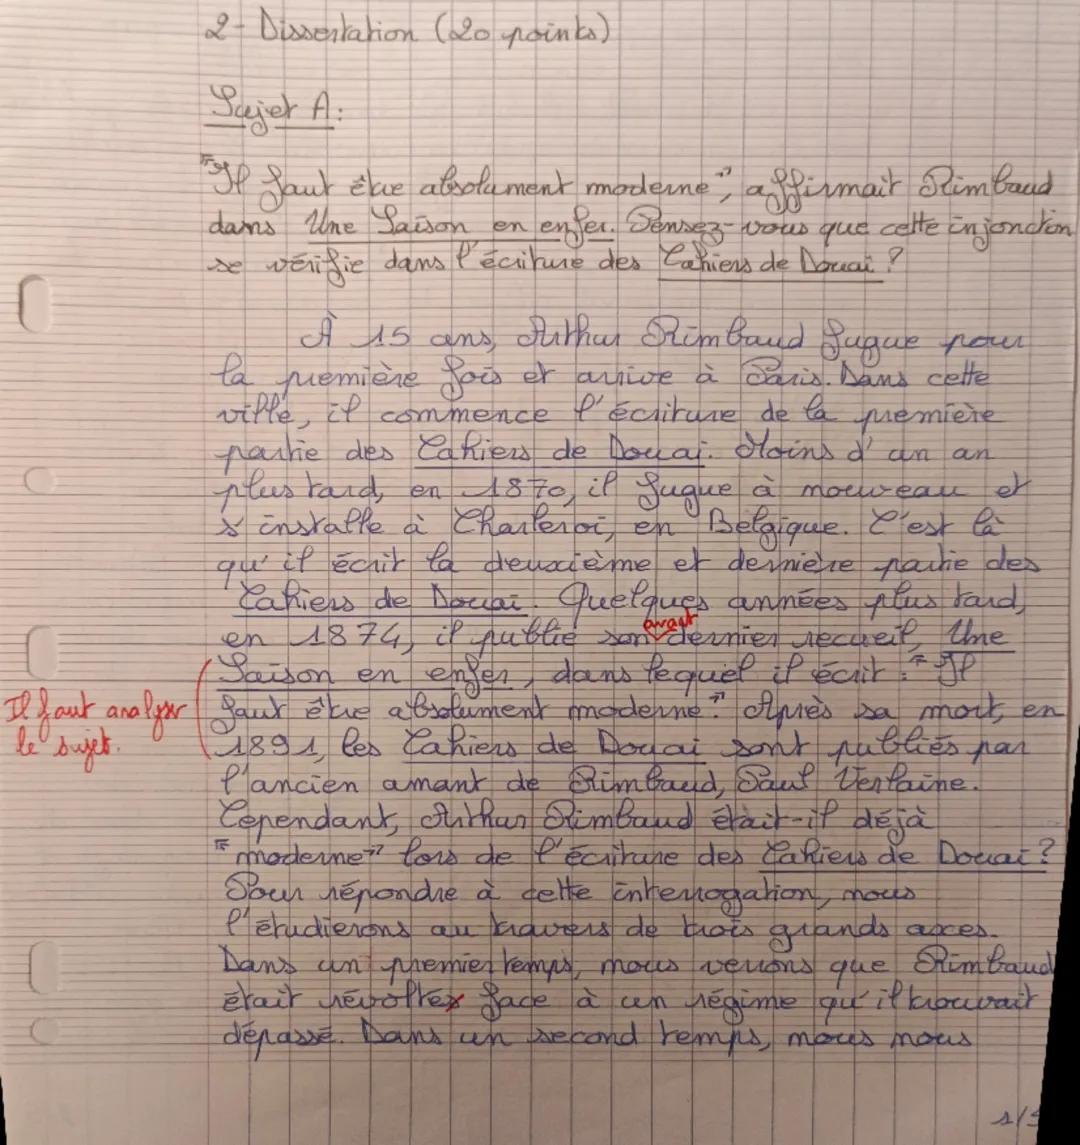 2- Dissertation (20 points)
Sujet A:
"Il faut être absolument moderne", affirmait Rimbaud
dans Une Saison en enfer. Pensez-vous que cette injonction
se vérifie dans l'écriture des Cahiers de Douai ?
À 15 ans, Arthur Rimbaud fugue pour
la première fois et arrive à Paris. Dans cette
ville, il commence l'écriture de la première
partie des Cahiers de Douai. Moins d'un an
plus tard, en 1870, il fugue à nouveau et
s'installe à Charleroi, en Belgique. C'est là
qu'il écrit la deuxième et dernière partie des
Cahiers de Douai. Quelques années plus tard,
avant
en 1874, il publie son dernier recueil, Une
Saison en enfer, dans lequel il écrit : "Il
Il faut analyser
faut être absolument moderne". Après sa mort, en
le sujet.
1891, les Cahiers de Douai sont publiés par
l'ancien amant de Rimbaud, Paul Verlaine.
Cependant, Arthur Rimbaud était-il déjà
"moderne" lors de l'écriture des Cahiers de Douai ?
Pour répondre à cette interrogation, nous
l'étudierons au travers de trois grands axes.
Dans un premier temps, nous verrons que Rimbaud
était révolté face à un régime qu'il trouvait
dépassé. Dans un second temps, nous nous
1/5